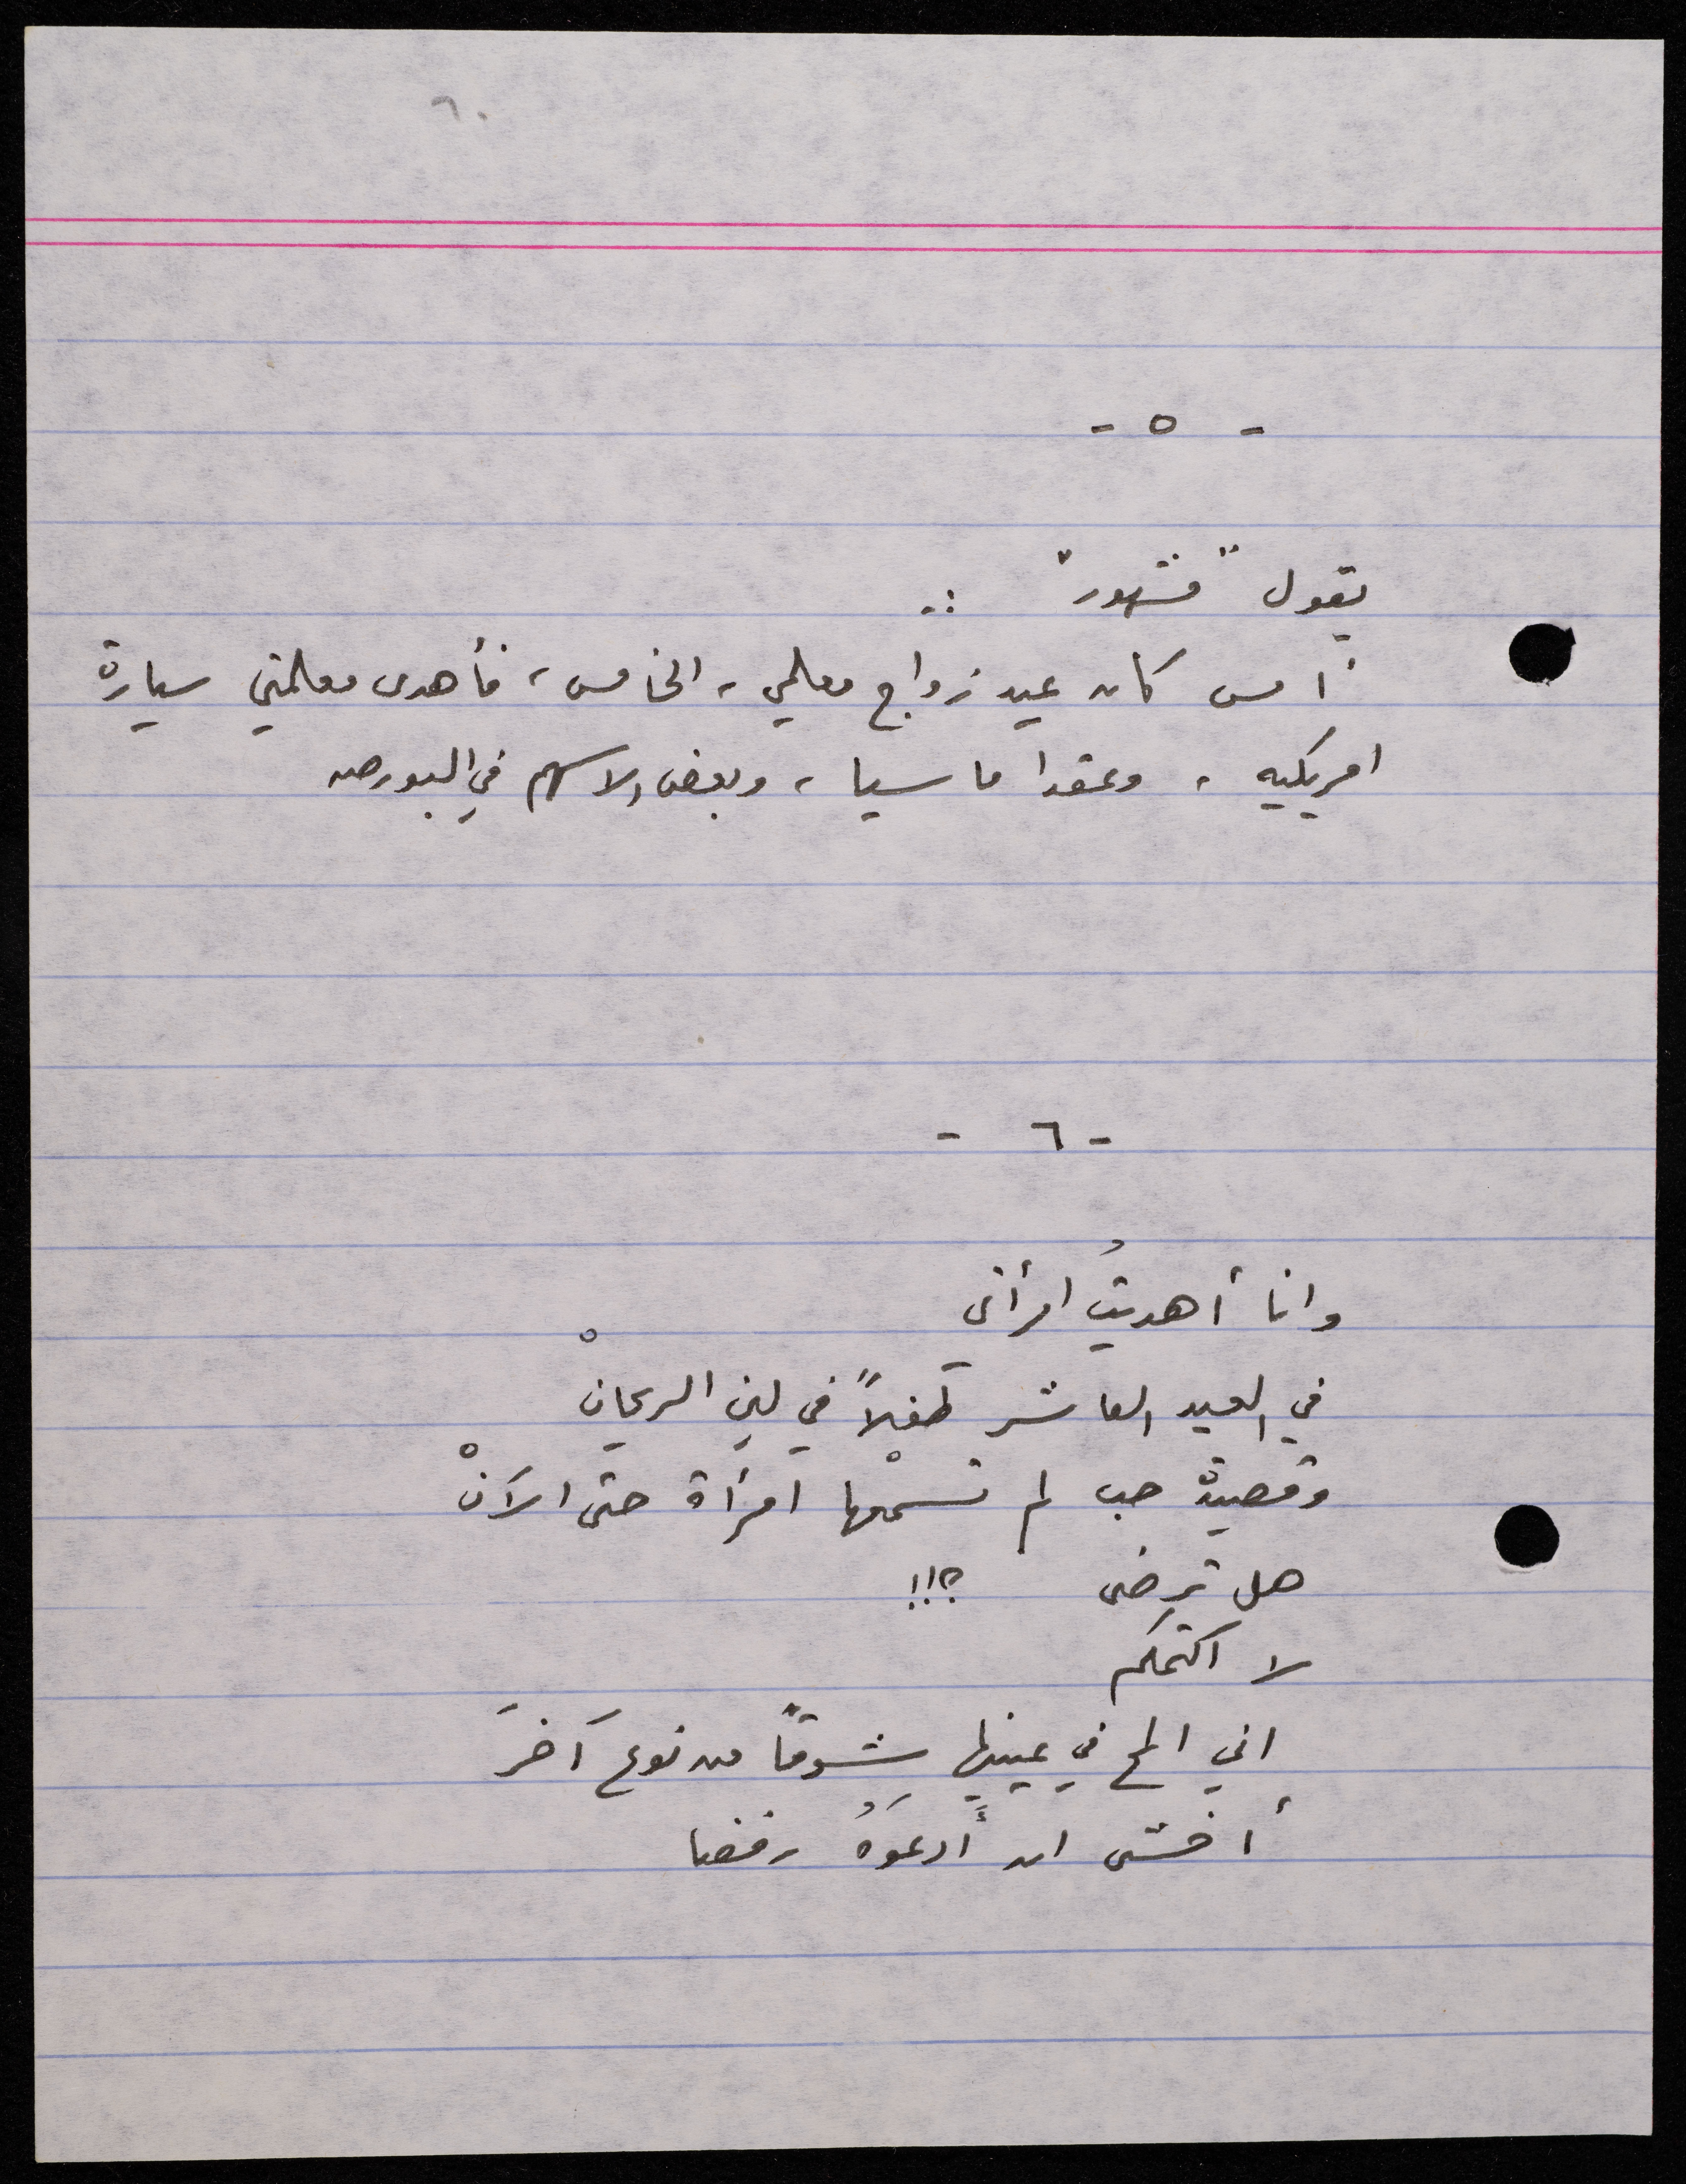 ٦٠
- ٥ -
يقول "قشهور" :-
أمس كان عيد زواج معلمي، الخامس، فأهدى معلمتي سيارة
امريكيه، وعقدا ماسيا، وبعض الاسهم في البورصه
- ٦ -
وانا أهديتُ امرأتى
في العيد العاشر طفلاً في لين الريحانْ
وقصيدة حب لم تسمعْها امرأة حتى الآنْ
هل ترضى ؟!!
لا اكتمكم
اني المح في عينيها شوقًا من نوع آخرَ
أخشى ان أدعوَهُ رفضا